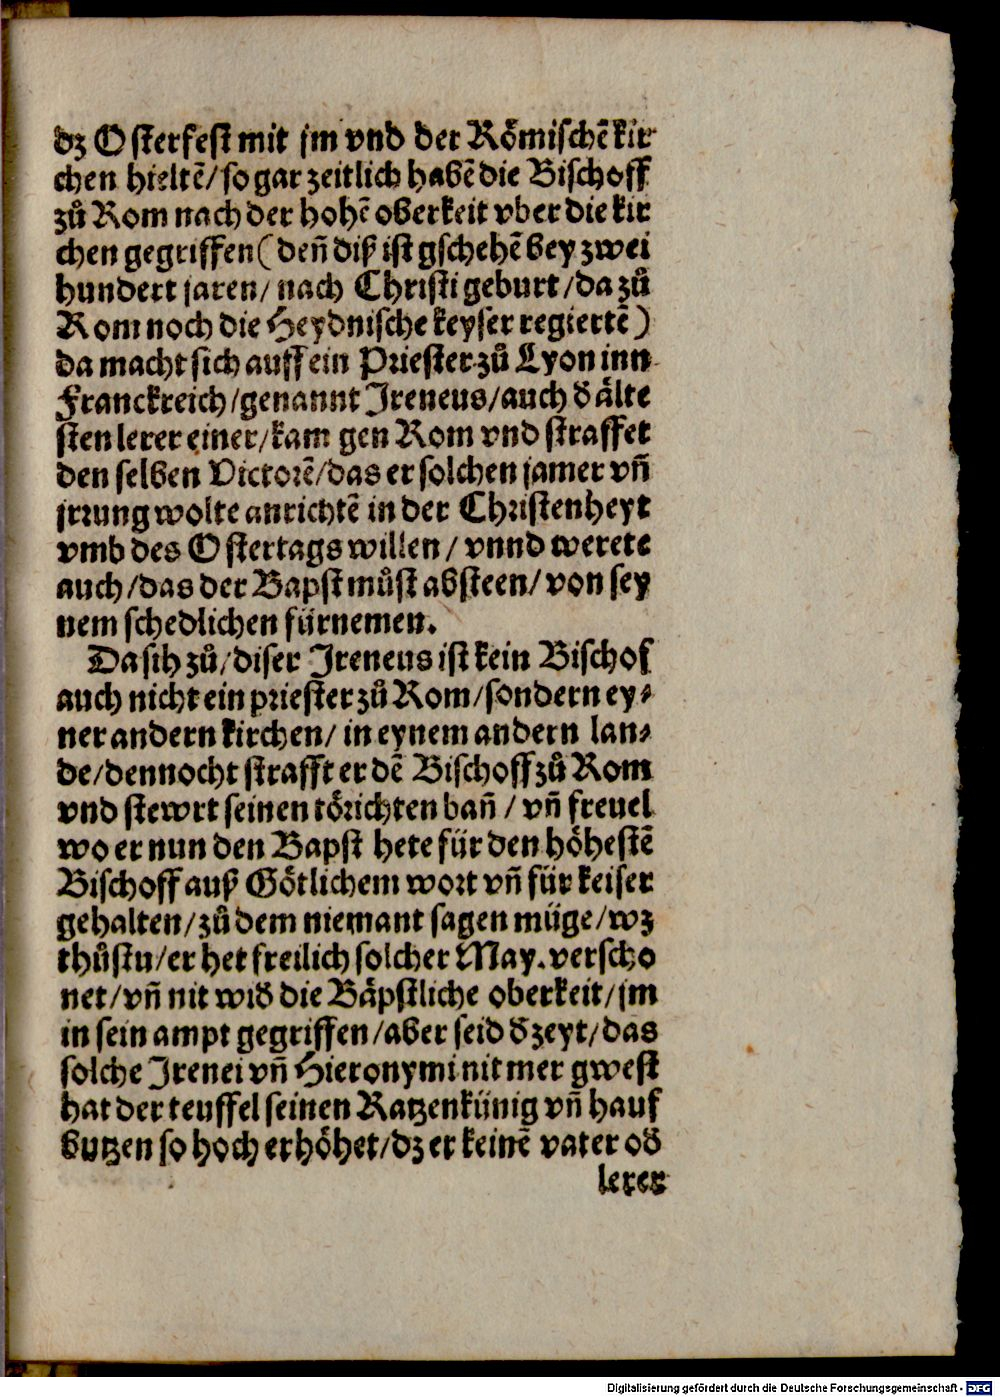 dz Osterfest mit jm vnd der Römischē kir
chen hieltē/so gar zeitlich habē die Bischoff
zů Rom nach der hohē oberkeit vber die kir
chen gegriffen (deñ diß ist gschehē bey zwei
hundert jaren/ nach Christi geburt/da zů
Rom noch die Heydnische keyser regiertē)
da macht sich auff ein Priester zů Lyon inn
Franckreich/genannt Jreneus/auch ð älte
sten lerer einer/kam gen Rom vnd straffet
den selben Victorē/das er solchen jamer vñ
jrrung wolte anrichtē in der Christenheyt
vmb des Ostertags willen/ vnnd werete
auch/das der Bapst můst absteen/ von sey
nem schedlichen fürnemen.
Da sih zů/diser Jreneus ist kein Bischof
auch nicht ein priester zů Rom/sondern ey⸗
ner andern kirchen/ in eynem andern lan⸗
de/dennocht strafft er dē Bischoff zů Rom
vnd stewrt seinen törichten bañ / vñ freuel
wo er nun den Bapst hete für den höhestē
Bischoff auß Götlichem wort vñ für keiser
gehalten/zů dem niemant sagen müge/wz
thůstu/er het freilich solcher May. verscho
net/vñ nit wið die Bäpstliche oberkeit/jm
in sein ampt gegriffen/aber seid ð zeyt/das
solche Jrenei vñ Hieronymi nit mer gwest
hat der teuffel seinen Ratzenkünig vñ hauf
butzen so hoch erhöhet/dz er keinē vater oð
lerer
Digitalisierung gefördert durch die Deutsche Forschungsgemeinschaft - DFG